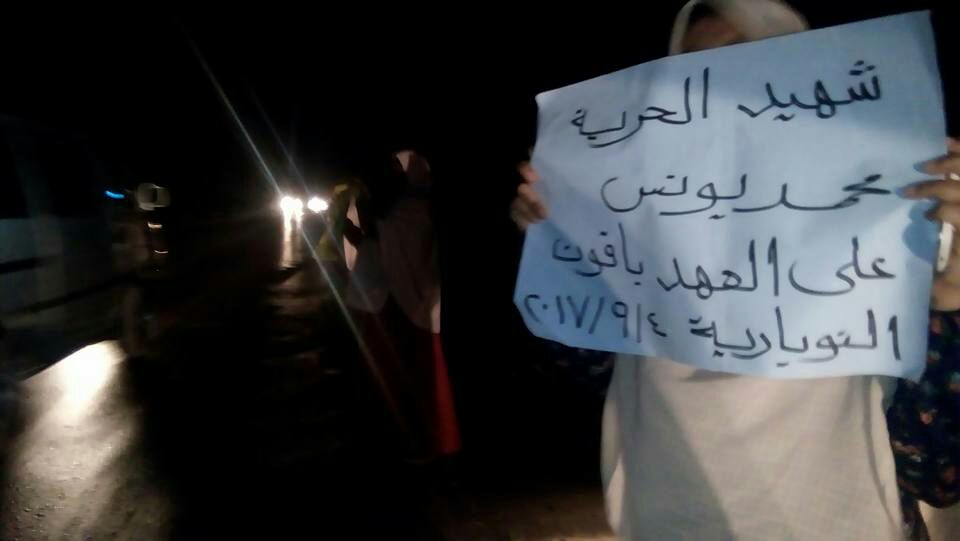 شهيد الحرية
محمد يونس
على العهد باقون
النويارية ٢٠١٧/٩/٤